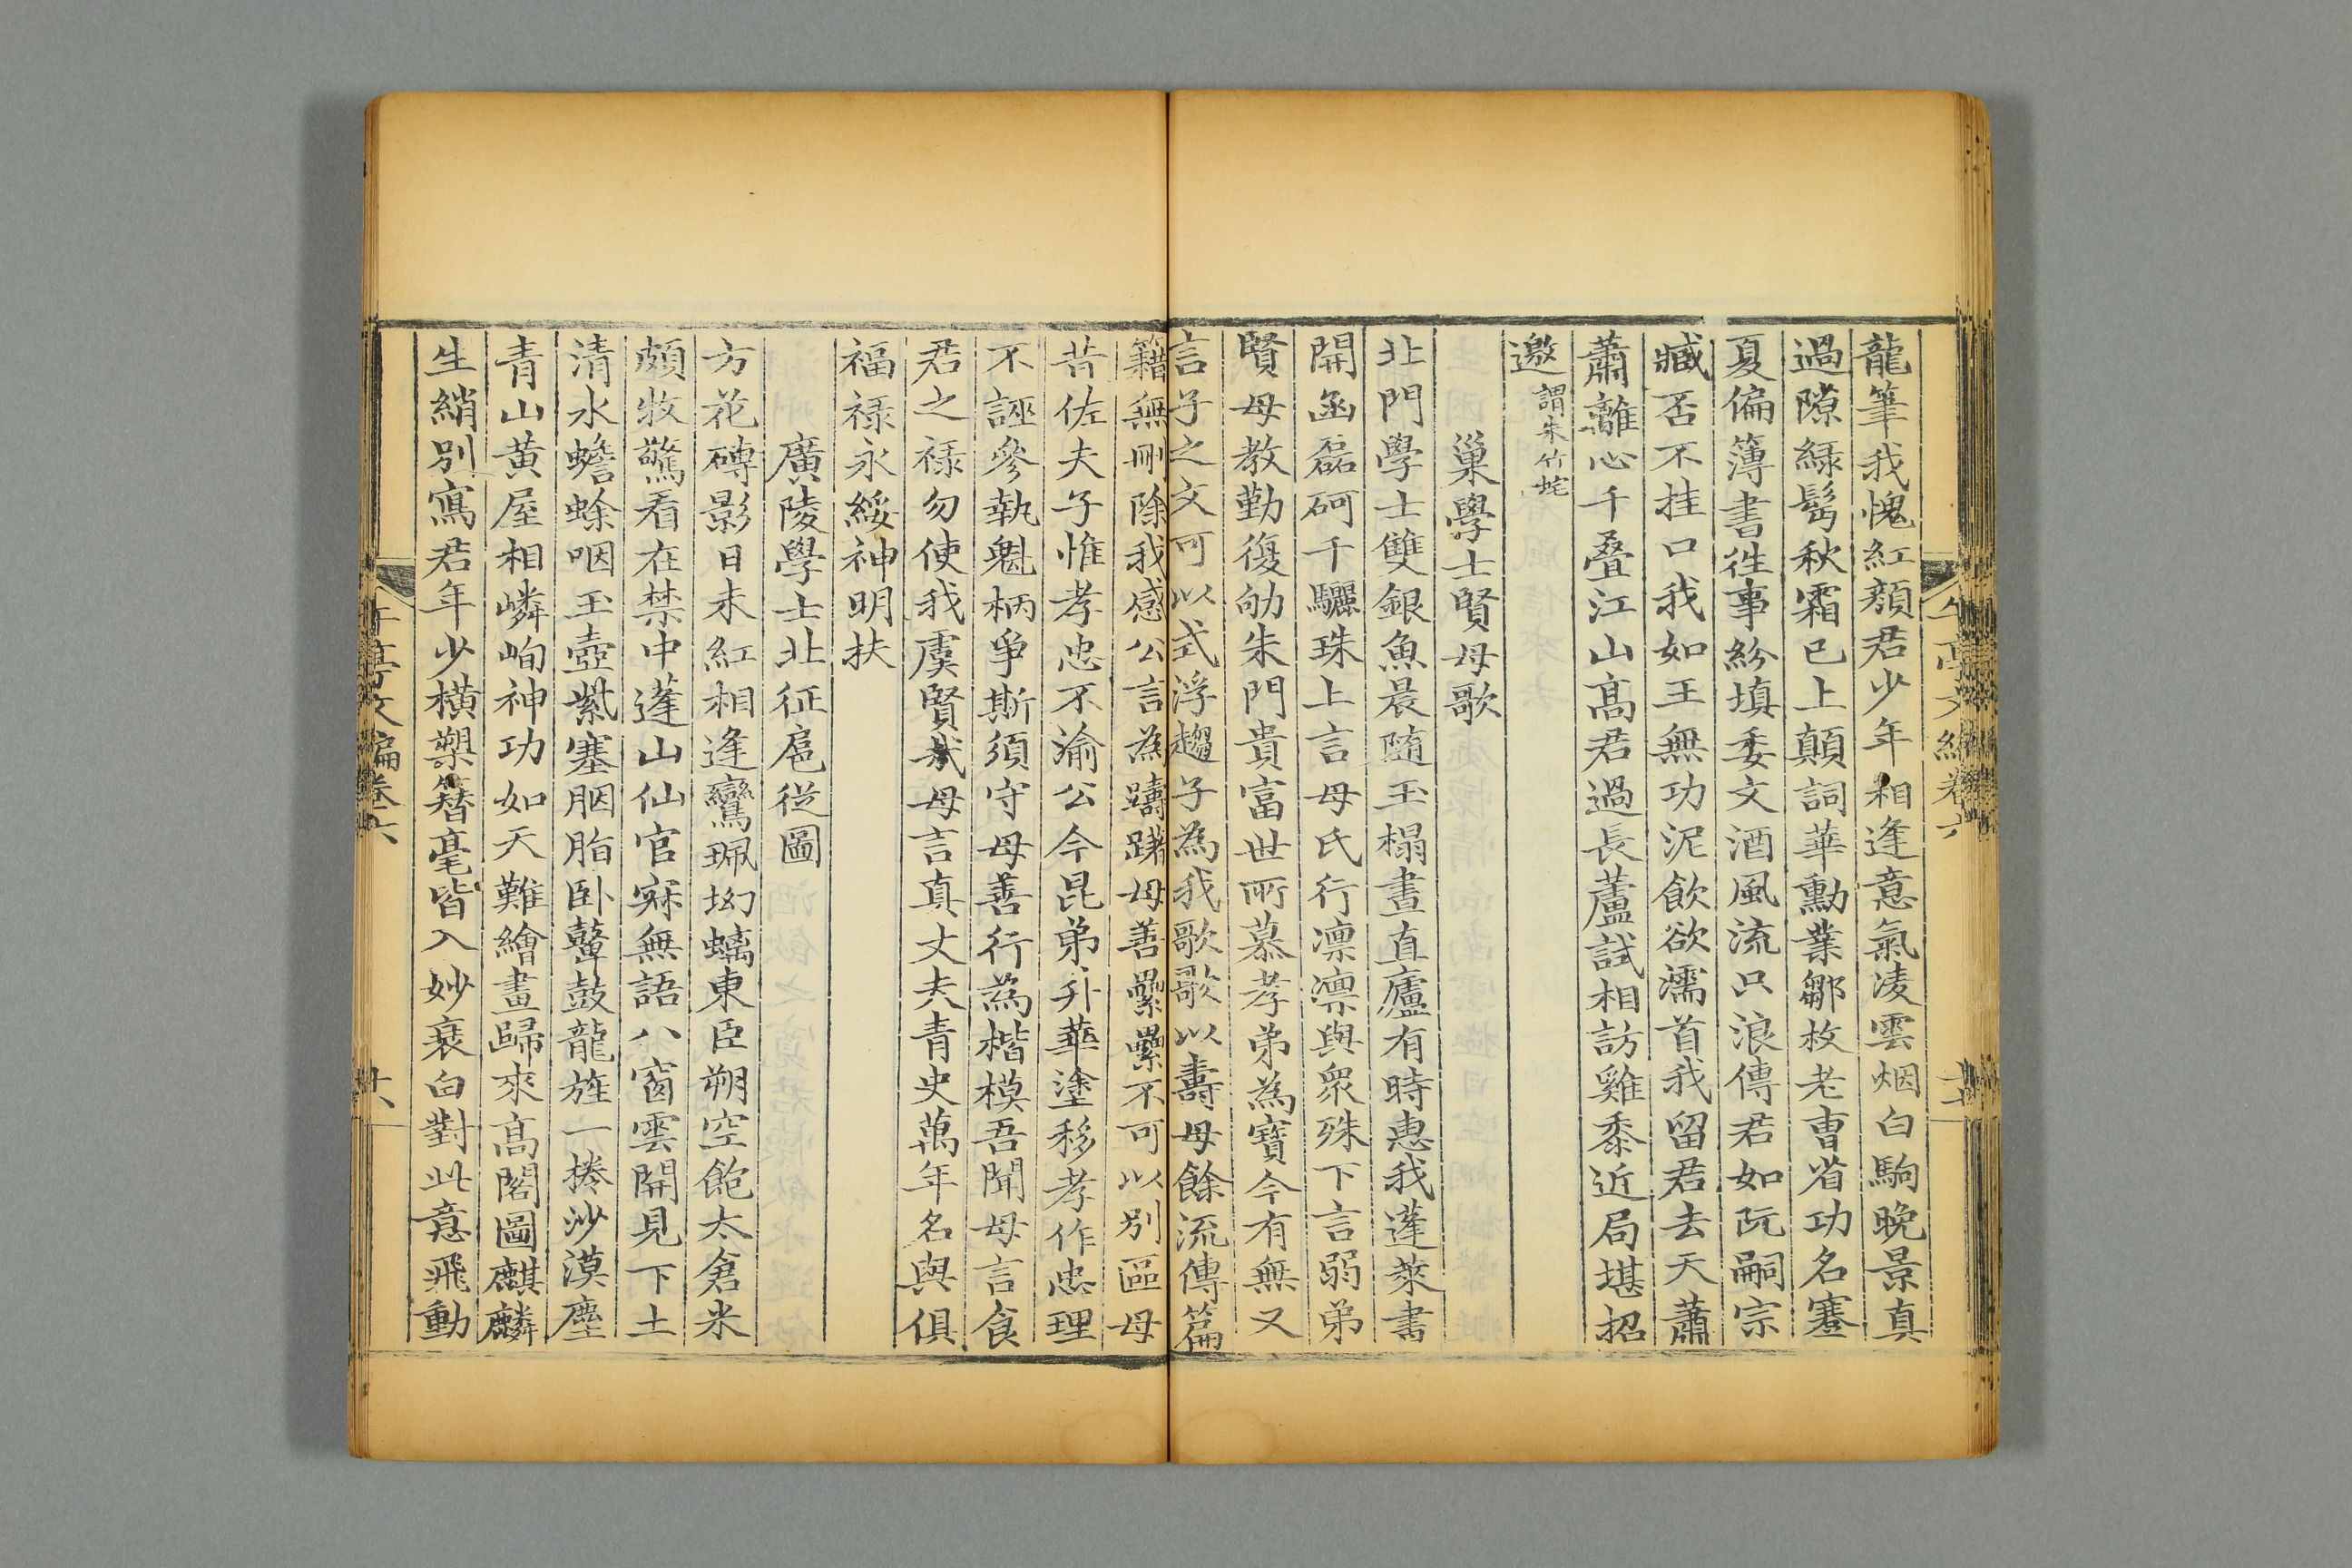 龍筆我愧紅顏君少年相逢意氣凌雲烟白駒晚景真
過隙綠髩秋霜已上顛詞華勳業鄒枚老曺省功名蹇
夏偏簿書徃事紛填委文酒風流只浪傳君如阮嗣宗
臧否不挂口我如王無功泥飲欲濡首我留君去天蕭
蕭離心千疊江山髙君過長蘆試相訪雞黍近局堪招
邀謂朱竹垞
巢學士賢母歌
北門學士雙銀魚晨隨玉榻晝直廬有時惠我蓬萊書
開函磊砢千驪珠上言母氏行凛凛與衆殊下言弱弟
賢母教勤復劬朱門貴富世所慕孝弟為寶今有無又
言子之文可以式浮趨子為我歌歌以壽母餘流傳篇
籍無刪除我感公言為躊躇母善纍纍不可以別區母
昔佐夫子惟孝忠不渝公今昆弟升華塗移孝作忠理
不誣參執魁柄爭斯須守母善行為楷模吾聞母言食
君之祿勿使我虞賢哉母言真丈夫青史萬年名與俱
福祿永綏神明扶
廣陵學士北征扈從圖
方花磚影日未紅相逢鸞珮坳螭東臣朔空飽太倉米
頗牧驚看在禁中蓬山仙官寐無語八窗雲開見下土
清水蟾蜍咽玉壺紫塞胭脂卧鼛鼓龍旌一捲沙漠塵
青山黄屋相嶙峋神功如天難繪畫歸來髙閣圖麒麟
生綃別寫君年少橫槊簪毫皆入妙衰白對此意飛動
午亭文編卷六
十六